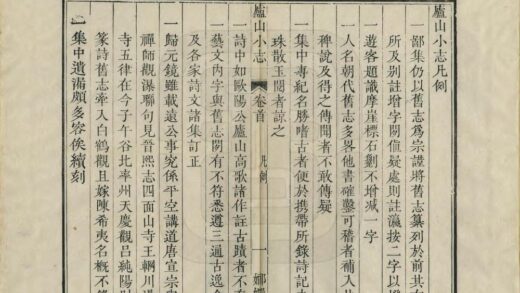 廬山小志凡例
一鄙集仍以舊志為宗謹將舊志纂列於前其
所及別註增字間值疑處則註瀛按二字以
一遊客題識摩崖標石剷不增減一字
一人名朝代舊志多畧他書確鑿可稽者補入
稗說及得之傳聞者不敢傳疑
一集中專紀名勝嗜古者便於攜帶所錄詩記
珠散玉閱者諒之
廬山小志 卷首 凡例 一 嫏
一詩中如歐陽公廬山高歌諸作註古蹟者不
一藝文內字與舊志間有不符悉遵三通古逸
及各家詩文諸集訂正
一歸元鏡雖載遠公事究係平空講道唐宣宗
禪師觀瀑聯句見晉熙志四面山寺王輞川過
寺五律在今子午谷比率州天慶觀呂純陽
篆詩舊志牽入白鶴觀且嫁陳希夷名概不
一集中遺漏頗多容俟續刻